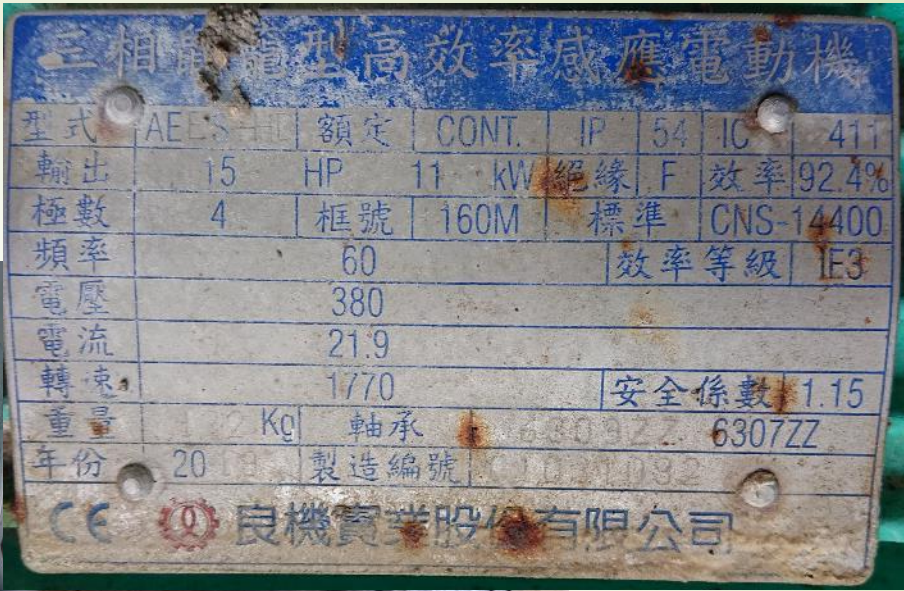 三相鼠籠型高效率感應電動機
型式 額定 CONT. IP 54 IC 411
輸出 15 HP 11 kW 絕緣 F 效率 92.4%
極數 4 框號 160M 標準 CNS-14400
頻率 60 效率等級 IE3
電壓 380
電流 21.9
轉速 1770 安全係數 1.15
重量 Kg 軸承 6309ZZ 6307ZZ
年份 2019 製造編號
CE 良機實業股份有限公司